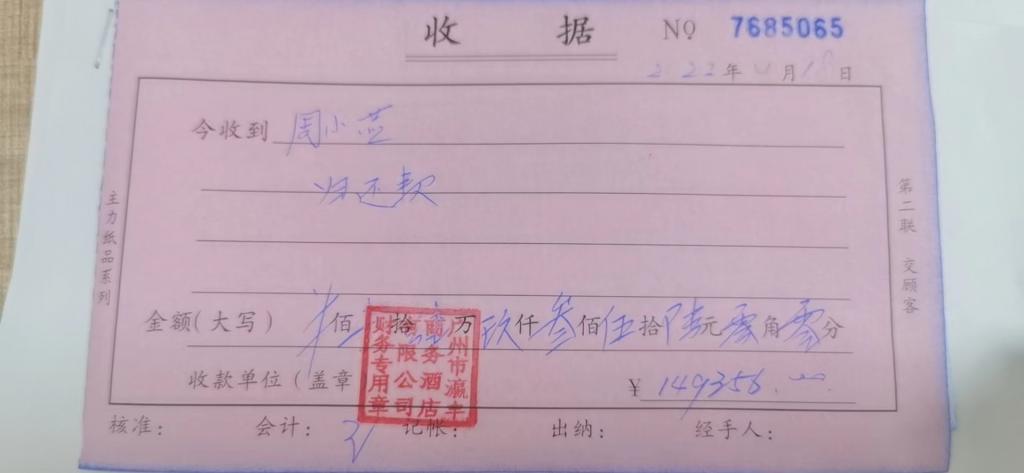 收据 № 7685065
2022年 月18日
今收到 周小燕
归还款
主力纸品系列
第二联 交顾客
金额(大写) 佰 拾 万 玖仟叁佰伍拾陆元零角零分
州市瀛丰商务酒店有限公司财务专用章
收款单位(盖章 ¥ 149356.
核准: 会计: 记帐: 出纳: 经手人: